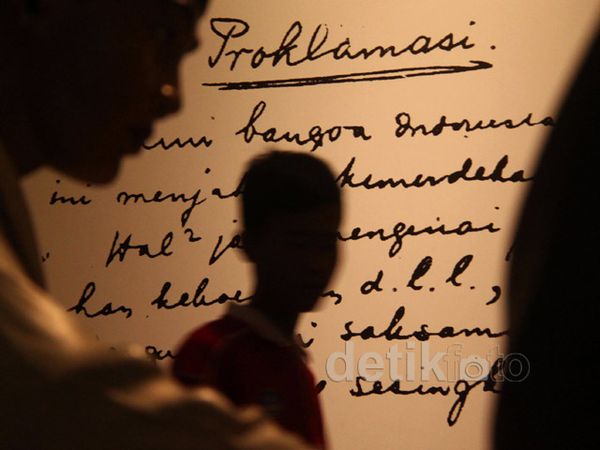 Proklamasi.
ami bangsa Indonesia
ini menja kemerdeka
Hal² j mengenai
han kekoe n d.l.l.,
saksam
sesingk
detikfoto